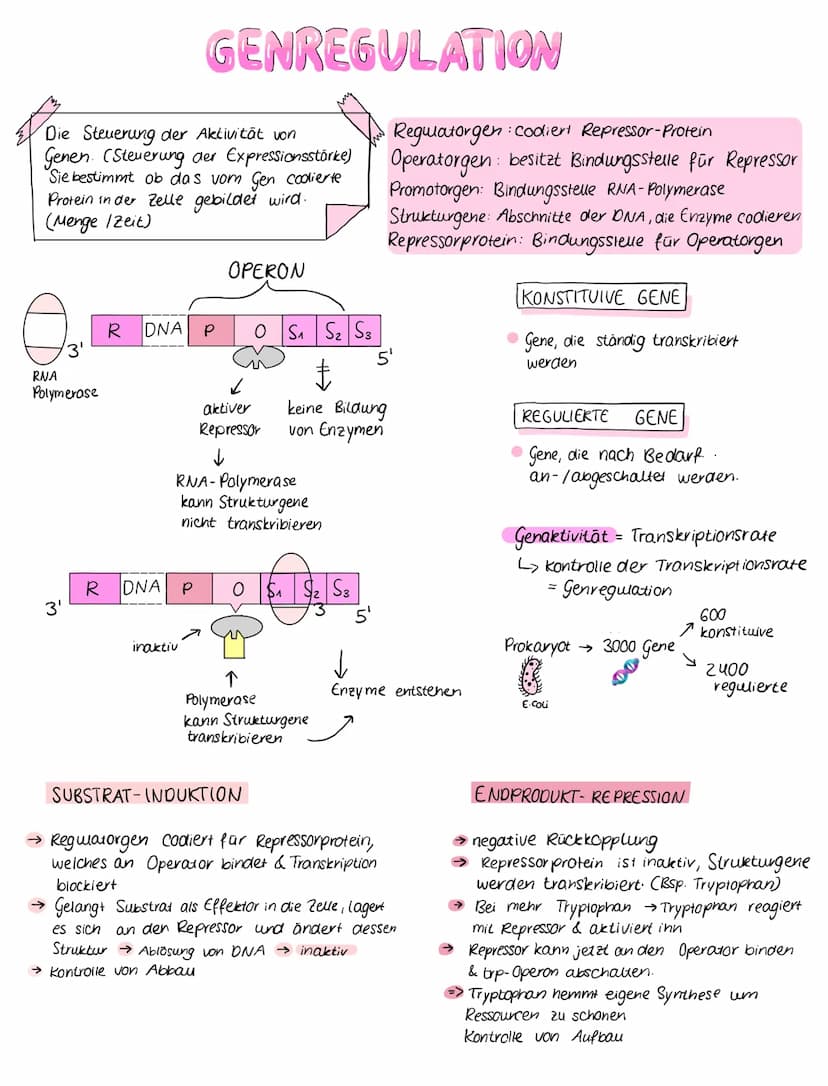 GENREGULATION
Die Steuerung der Aktivität von
Genen. (Steuerung der Expressionsstärke)
Sie bestimmt ob das vom Gen codierte
Protein in der Zelle gebildet wird.
(Menge / Zeit)
Regulatorgen: codiert Repressor-Protein
Operatorgen: besitzt Bindungsstelle für Repressor
Promotorgen: Bindungsstelle RNA-Polymerase
Strukturgene: Abschnitte der DNA, die Enzyme codieren
Repressorprotein: Bindungsstelle für Operatorgen
OPERON
R DNA P O S1 S2 S3
3' 5'
RNA
Polymerase
aktiver
Repressor
keine Bildung
von Enzymen
RNA-Polymerase
kann Strukturgene
nicht transkribieren
KONSTITUIVE GENE
Gene, die ständig transkribiert
werden
REGULIERTE GENE
Gene, die nach Bedarf
an-/abgeschaltet werden.
Genaktivität = Transkriptionsrate
↳ Kontrolle der Transkriptionsrate
= Genregulation
R DNA P O S1 S2 S3
3' 3 5'
inaktiv
Polymerase
kann Strukturgene
transkribieren
Enzyme entstehen
Prokaryot → 3000 Gene
600
konstituive
2400
regulierte
E.coli
SUBSTRAT-INDUKTION
→ Regulatorgen codiert für Repressorprotein,
welches an Operator bindet & Transkription
blockiert
→ Gelangt Substrat als Effektor in die Zelle, lagert
es sich an den Repressor und ändert dessen
Struktur → Ablösung von DNA → inaktiv
→ Kontrolle von Abbau
ENDPRODUKT-REPRESSION
→ negative Rückkopplung
→ Repressorprotein ist inaktiv, Strukturgene
werden transkribiert. (Bsp. Tryptophan)
→ Bei mehr Tryptophan → Tryptophan reagiert
mit Repressor & aktiviert ihn
→ Repressor kann jetzt an den Operator binden
& trp-Operon abschalten.
⇒ Tryptophan hemmt eigene Synthese um
Ressourcen zu schonen
Kontrolle von Aufbau